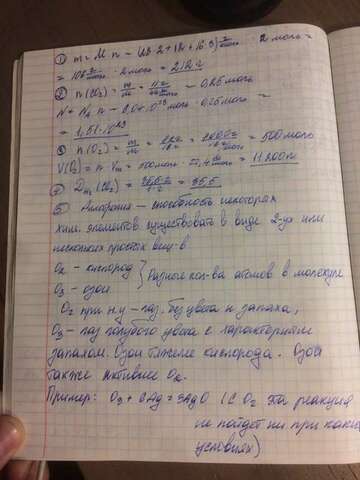 ① m = M · n = (23 · 2 + 12 + 16 · 3) г/моль · 2 моль =
= 106 г/моль · 2 моль = 212 г
② n(CO₂) = m/M = 11 г / 44 г/моль = 0,25 моль
N = Nₐ · n = 6,04 · 10²³ моль · 0,25 моль =
= 1,51 · 10²³
③ n(O₂) = = = 500 моль
V(O₂) = n · Vₘ = 500 моль · 22,4 = 11200 л
④ = = 35,5
⑤ Аллотропия – способность некоторых
хим. элементов существовать в виде 2-ух или
нескольких простых вещ-в
O₂ – кислород } Разные кол-ва атомов в молекуле
O₃ – озон
O₂ при н.у – газ. без цвета и запаха,
O₃ – газ голубого цвета с характерным
запахом. Озон тяжелее кислорода. Озон
также активнее O₂.
Пример: O₃ + 6Ag = 3Ag₂O (С O₂ эта реакция
не пойдет ни при каких
условиях)